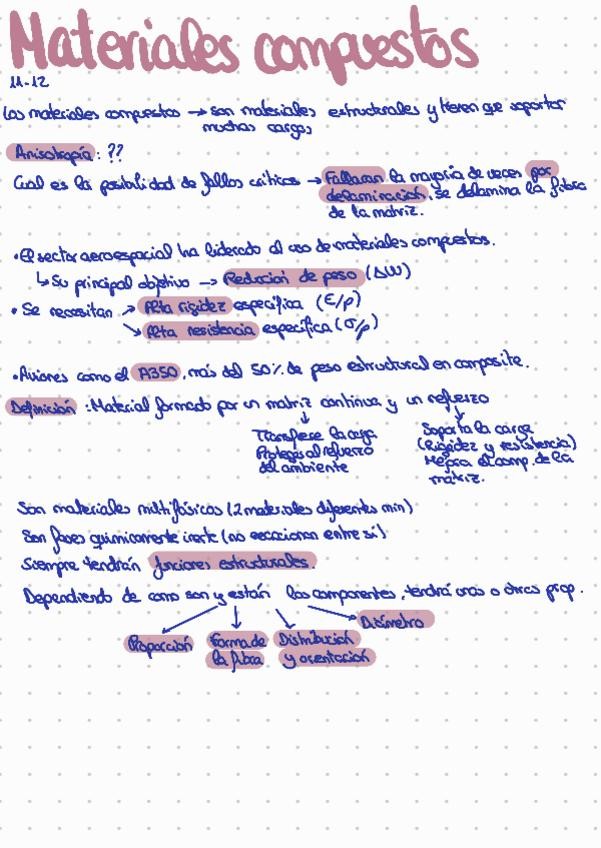 Materiales compuestos
11-12
Los materiales compuestos → son materiales estructurales y tienen que soportar
muchas cargas
Anisotropía: ??
Cual es la posibilidad de fallos críticos → Fallaran la mayoría de veces por
delaminación, se delamina la fibra
de la matriz.
• El sector aeroespacial ha liderado el uso de materiales compuestos.
↳ Su principal objetivo → Reducción de peso (ΔW)
• Se necesitan ↗ Alta rigidez específica (E/ρ)
↘ Alta resistencia específica (σ/ρ)
• Aviones como el A350, más del 50% de peso estructural en composite.
Definición: Material formado por un matriz continua y un refuerzo
↓ ↓
Transfiere la carga
Protege al refuerzo
del ambiente
Soporta la carga
(Rigidez y resistencia)
Mejora el comp. de la
matriz.
Son materiales multifásicos (2 materiales diferentes min)
Son fases quimicamente inerte (no reaccionan entre sí)
Siempre tendrán funciones estructurales.
Dependiendo de como son y están los componentes, tendrá unas o otras prop.
Proporción
Forma de
la fibra
Distribución
y orientación
Diámetro